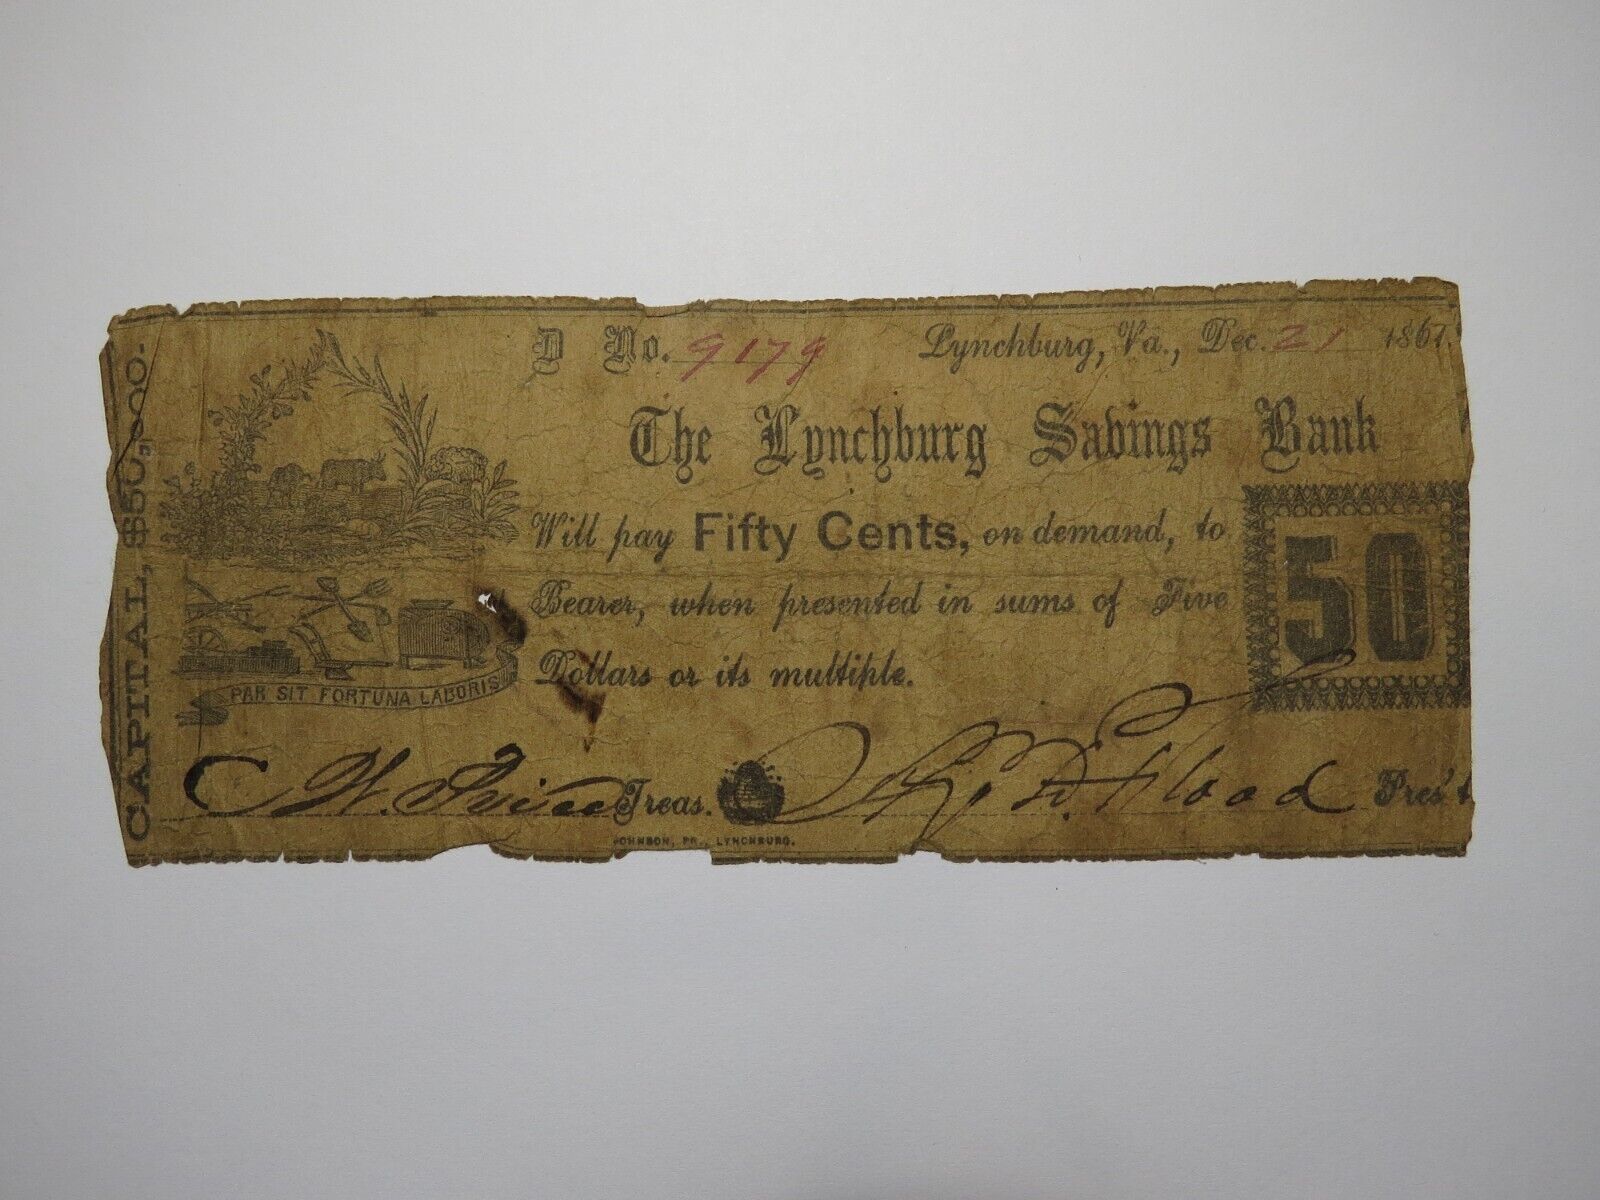 CAPITAL, $50,000.
D No. 9179 Lynchburg, Va., Dec. 21 1861.
The Lynchburg Savings Bank
Will pay Fifty Cents, on demand, to
Bearer, when presented in sums of Five
Dollars or its multiple.
50
PAR SIT FORTUNA LABORIS
Treas.
Flood Pres't
JOHNSON, PR., LYNCHBURG.